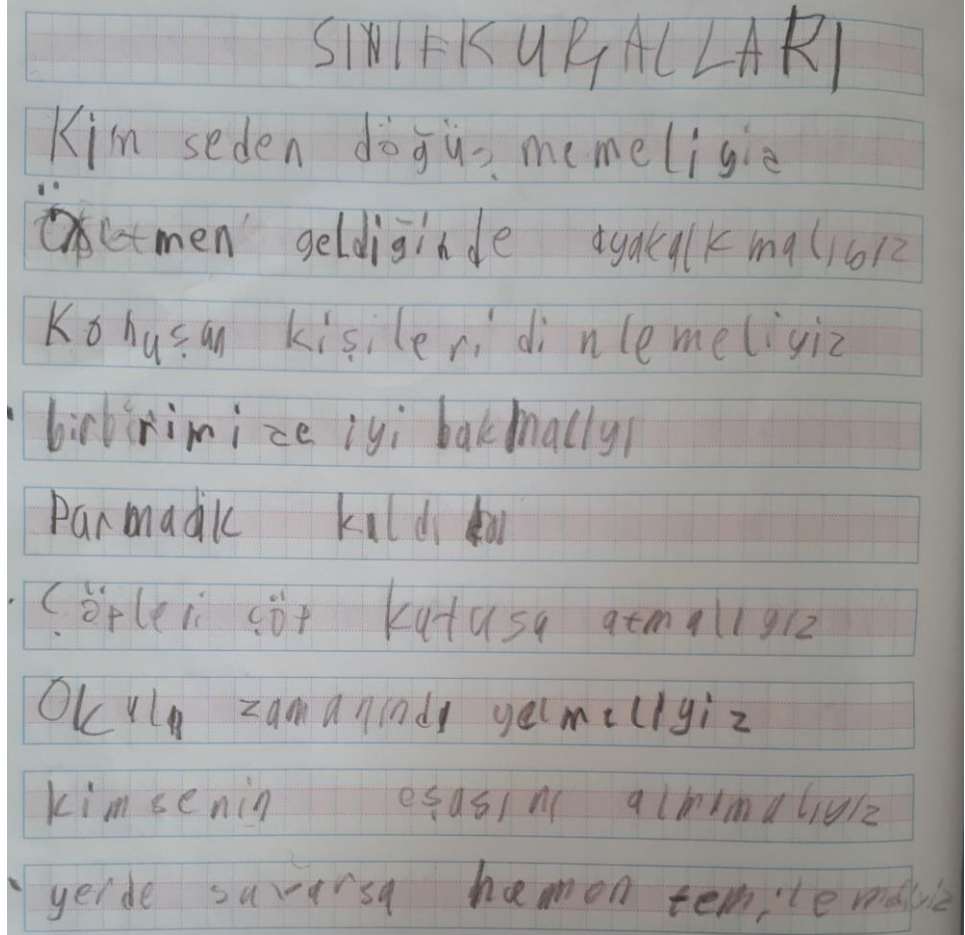 SINIF KURGALLARI
Kim seden döğüş memeliyiz
geldiğinde ayakalkmalıyız
Konuşan kişileri dinlemeliyiz
birbirimize iyi bakmallyı
Parmadik kaldı
Çöpleri çöp kutusa atmalıyız
Okula zamanında gelmeliyiz
kimsenin eşasını almımalıyız
yerde su varsa hemen temizlemeliyiz